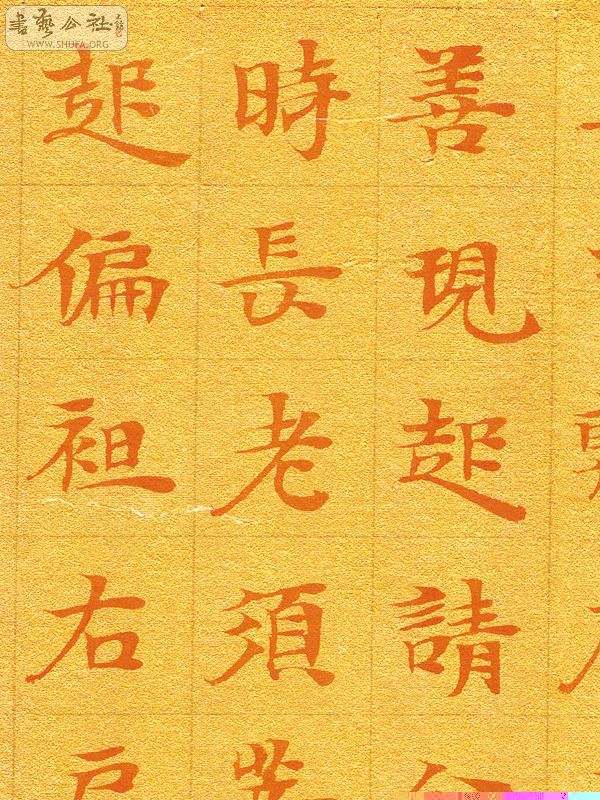 善現起請
時長老須
起偏袒右
書藝公社
WWW.SHUFA.ORG